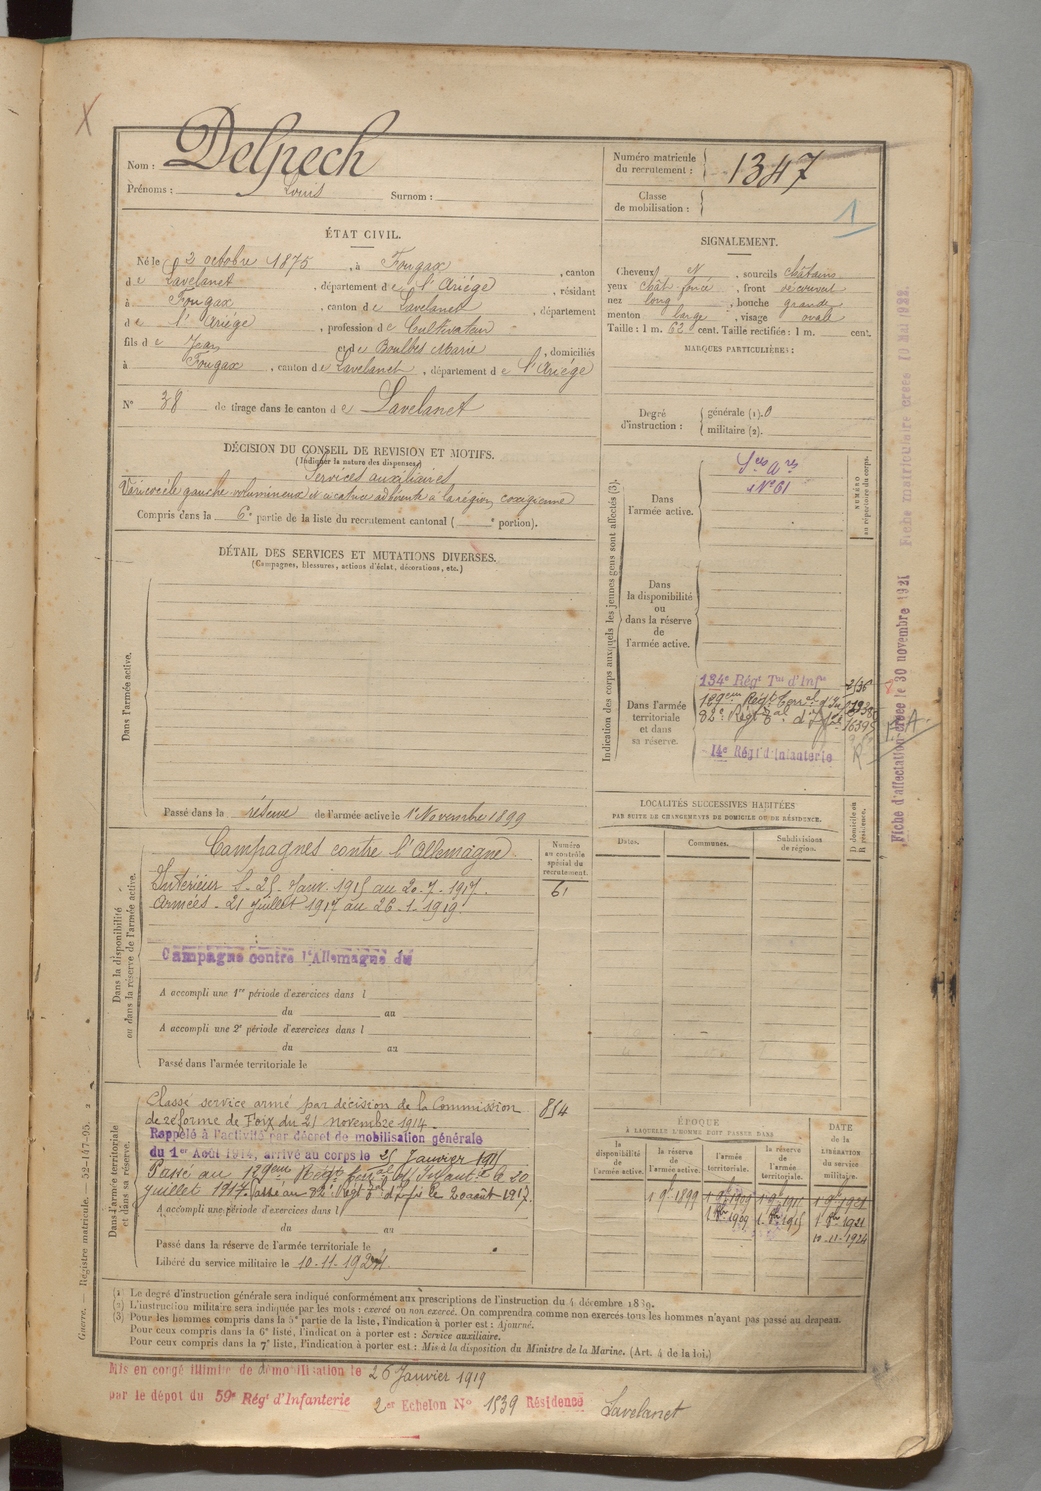 Nom : Delpech
Prénoms : Louis Surnom :
Numéro matricule du recrutement : 1347
Classe de mobilisation :
1
ÉTAT CIVIL.
Né le 2 octobre 1875, à Fougax, canton
de Lavelanet, département de l'Ariège, résidant
à Fougax, canton de Lavelanet, département
de l'Ariège, profession de Cultivateur
fils de Jean et de Boulbes Marie, domiciliés
à Fougax, canton de Lavelanet, département de l'Ariège
N° 38 de tirage dans le canton de Lavelanet
SIGNALEMENT.
Cheveux N, sourcils châtains
yeux chât. foncé, front découvert
nez long, bouche grande
menton large, visage ovale
Taille : 1 m. 62 cent. Taille rectifiée : 1 m. cent.
MARQUES PARTICULIÈRES :
Degré d'instruction : générale (1). 0
militaire (2).
DÉCISION DU CONSEIL DE REVISION ET MOTIFS.
(Indiquer la nature des dispenses.)
Services auxiliaires
Varicocèle gauche volumineux et cicatrice adhérente à la région coxygienne
Compris dans la 6e partie de la liste du recrutement cantonal ( e portion).
DÉTAIL DES SERVICES ET MUTATIONS DIVERSES.
(Campagnes, blessures, actions d'éclat, décorations, etc.)
Dans l'armée active.
Passé dans la réserve de l'armée active le 1er Novembre 1899
Indication des corps auxquels les jeunes gens sont affectés (3).
Dans l'armée active.
Ses Ares
N° 61
NUMÉRO au répertoire du corps.
Dans la disponibilité ou dans la réserve de l'armée active.
Dans l'armée territoriale et dans sa réserve.
134e Régt Tal d'Infie
129em Régt Terral d'Inf
82e Régt Tal d'Infie 16395
14e Régt d'Infanterie
LOCALITÉS SUCCESSIVES HABITÉES
PAR SUITE DE CHANGEMENTS DE DOMICILE OU DE RÉSIDENCE.
Dates. Communes. Subdivisions de région. D domicile ou R résidence.
Dans la disponibilité ou dans la réserve de l'armée active.
Campagnes contre l'Allemagne
Numéro au contrôle spécial du recrutement.
61
Intérieur S. 25 Janv. 1915 au 20-7-1917.
Armées - 21 juillet 1917 au 26-1-1919.
Campagne contre l'Allemagne du
A accompli une 1re période d'exercices dans l
du au
A accompli une 2e période d'exercices dans l
du au
Passé dans l'armée territoriale le
Dans l'armée territoriale et dans sa réserve.
Classé service armé par décision de la Commission 854
de réforme de Foix du 21 novembre 1914.
Rappelé à l'activité par décret de mobilisation générale
du 1er Août 1914, arrivé au corps le 25 Janvier 1915
Passé au 129em Régt Terral d'Infanie le 20
juillet 1917. Passé au 82e Régt Tal d'Infie le 20 août 1917.
A accompli une période d'exercices dans l
du au
Passé dans la réserve de l'armée territoriale le
Libéré du service militaire le 10-11-1924
ÉPOQUE
À LAQUELLE L'HOMME DOIT PASSER DANS
la disponibilité de l'armée active. la réserve de l'armée active. l'armée territoriale. la réserve de l'armée territoriale.
DATE de la LIBÉRATION du service militaire.
1 9bre 1899 1 9bre 1909 1 9bre 1915 1 9bre 1921
1 9bre 1909 1 9bre 1915 1 9bre 1921
10-11-1924
(1) Le degré d'instruction générale sera indiqué conformément aux prescriptions de l'instruction du 4 décembre 1889.
(2) L'instruction militaire sera indiquée par les mots : exercé ou non exercé. On comprendra comme non exercés tous les hommes n'ayant pas passé au drapeau.
(3) Pour les hommes compris dans la 5e partie de la liste, l'indication à porter est : Ajourné.
Pour ceux compris dans la 6e liste, l'indication à porter est : Service auxiliaire.
Pour ceux compris dans la 7e liste, l'indication à porter est : Mis à la disposition du Ministre de la Marine. (Art. 4 de la loi.)
Mis en congé illimité de démobilisation le 26 Janvier 1919
par le dépot du 59e Régt d'Infanterie 2er Echelon N° 1539 Résidence Lavelanet
Fiche d'affectation créée le 30 novembre 1921
Fiche matriculaire créée 10 Mai 1922.
Guerre. — Registre matricule.